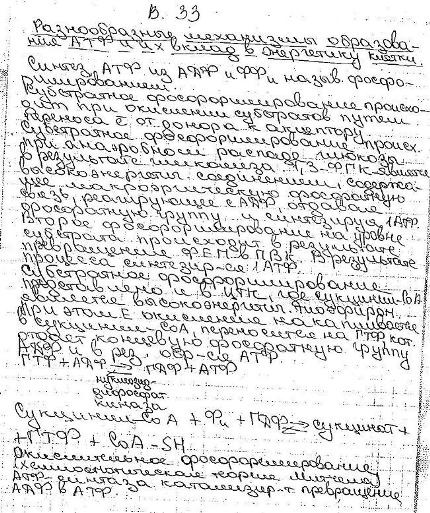 В. 33
Разнообразные механизмы образова-
ния АТФ и их вклад в энергетику клетки
Синтез АТФ из АДФ и Фн назыв. фосфо-
рилированием.
Субстратное фосфорилирование происхо-
дит при окислении субстратов путем
переноса ē от донора к акцептору.
Субстратное фосфорилирование происх.
при анаэробном распаде глюкозы
в результате гликолиза. 1,3-ФГК
высокоэнергет. соединение, содержа-
щее макроэргическую фосфатную
связь, реагирующее с АДФ, отдавая
фосфатную группу и синтезируя 1 АТФ.
Второе фосфорилирование на уровне
субстрата происходит в результате
превращения ФЕП в ПВК. В результате
процесса синтезир-ся 1 АТФ.
Субстратное фосфорилирование
представлено и в ц. МТК, где сукцинил-КоА
является высокоэнергет. тиоэфиром.
При этом Е окисления накапливается
в сукцинил-СоА, переносится на ГТФ, кот.
отдает концевую фосфатную группу
АДФ и в рез. обр-ся АТФ.
ГТФ + АДФ ⇄ ГДФ + АТФ
нуклеозид-
дифосфат
киназа
Сукцинил-СоА + Фн + ГДФ ⇄ сукцинат +
+ ГТФ + СоА-SH
Окислительное фосфорилирование
(хемиосмотическая теория Митчелла)
АТФ-синтаза катализир-т превращение
АДФ в АТФ.